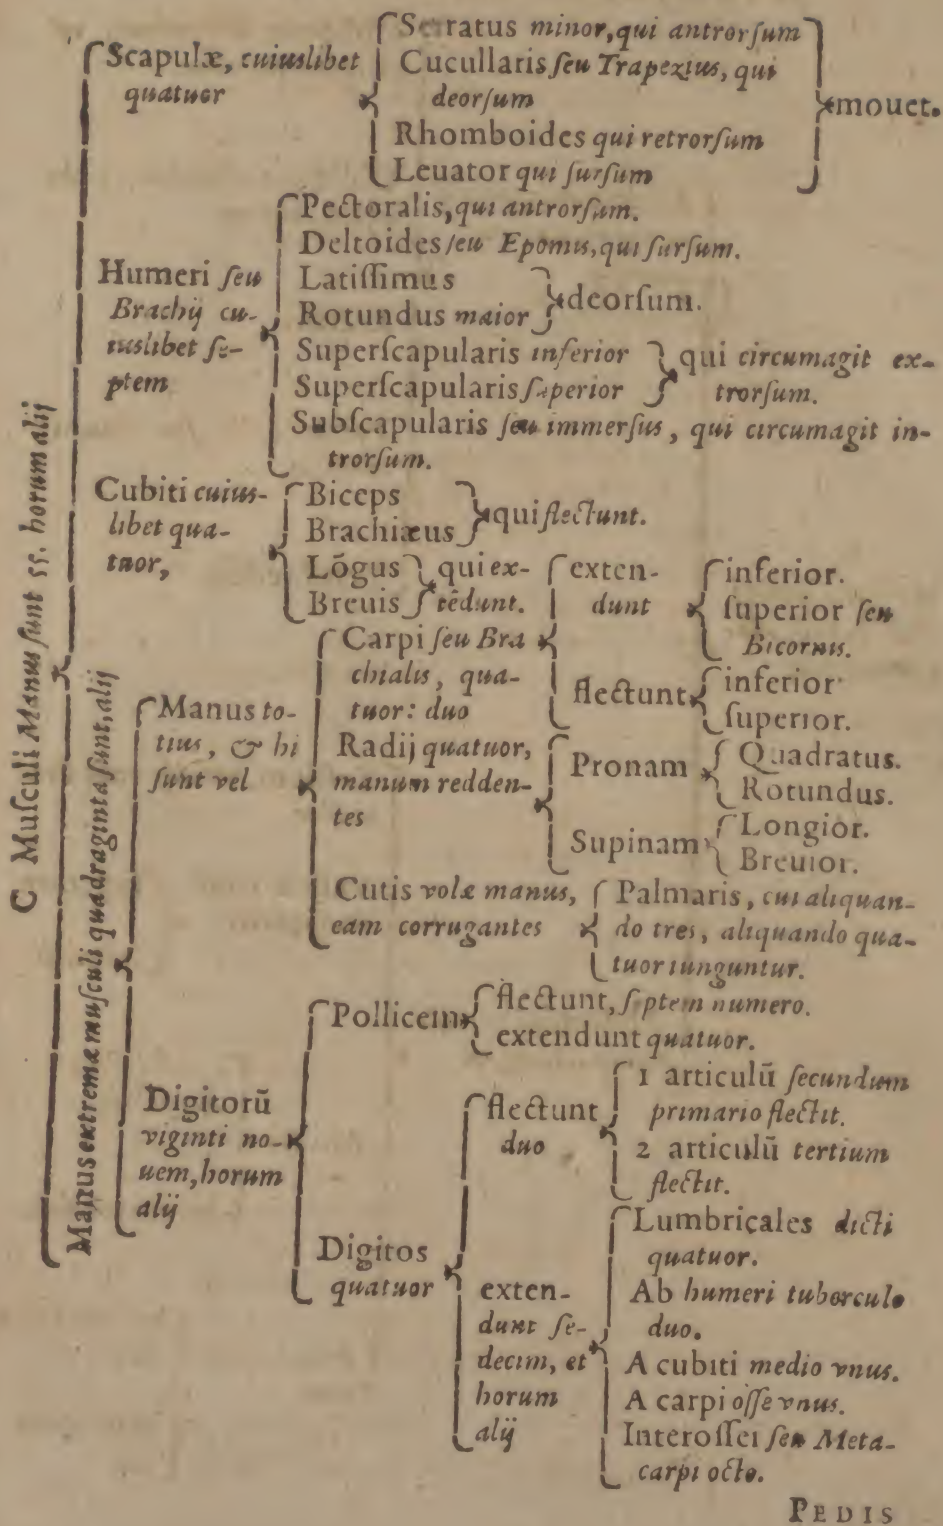 C Musculi Manus sunt 55. horum alij
Scapulæ, cuiuslibet
quatuor
Serratus minor, qui antrorsum
Cucullaris seu Trapezius, qui
deorsum
Rhomboides qui retrorsum
Leuator qui sursum
mouet.
Humeri seu
Brachij cu-
iuslibet se-
ptem
Pectoralis, qui antrorsum.
Deltoides seu Epomis, qui sursum.
Latissimus
Rotundus maior
deorsum.
Superscapularis inferior
Superscapularis superior
qui circumagit ex-
trorsum.
Subscapularis seu immersus, qui circumagit in-
trorsum.
Cubiti cuius-
libet qua-
tuor,
Biceps
Brachiæus
qui flectunt.
Lõgus
Breuis
qui ex-
tēdunt.
Manus extremæ musculi quadraginta sunt, alij
Manus to-
tius, & hi
sunt vel
Carpi seu Bra
chialis, qua-
tuor: duo
exten-
dunt
inferior.
superior seu
Bicornis.
flectunt
inferior
superior.
Radij quatuor,
manum redden-
tes
Pronam
Quadratus.
Rotundus.
Supinam
Longior.
Breuior.
Cutis volæ manus,
eam corrugantes
Palmaris, cui aliquan-
do tres, aliquando qua-
tuor iunguntur.
Digitorū
viginti no-
uem, horum
alij
Pollicem
flectunt, septem numero.
extendunt quatuor.
Digitos
quatuor
flectunt
duo
1 articulū secundum
primario flectit.
2 articulū tertium
flectit.
exten-
dunt se-
decim, et
horum
alij
Lumbricales dicti
quatuor.
Ab humeri tuberculo
duo.
A cubiti medio vnus.
A carpi osse vnus.
Interossei seu Meta-
carpi octo.
PEDIS